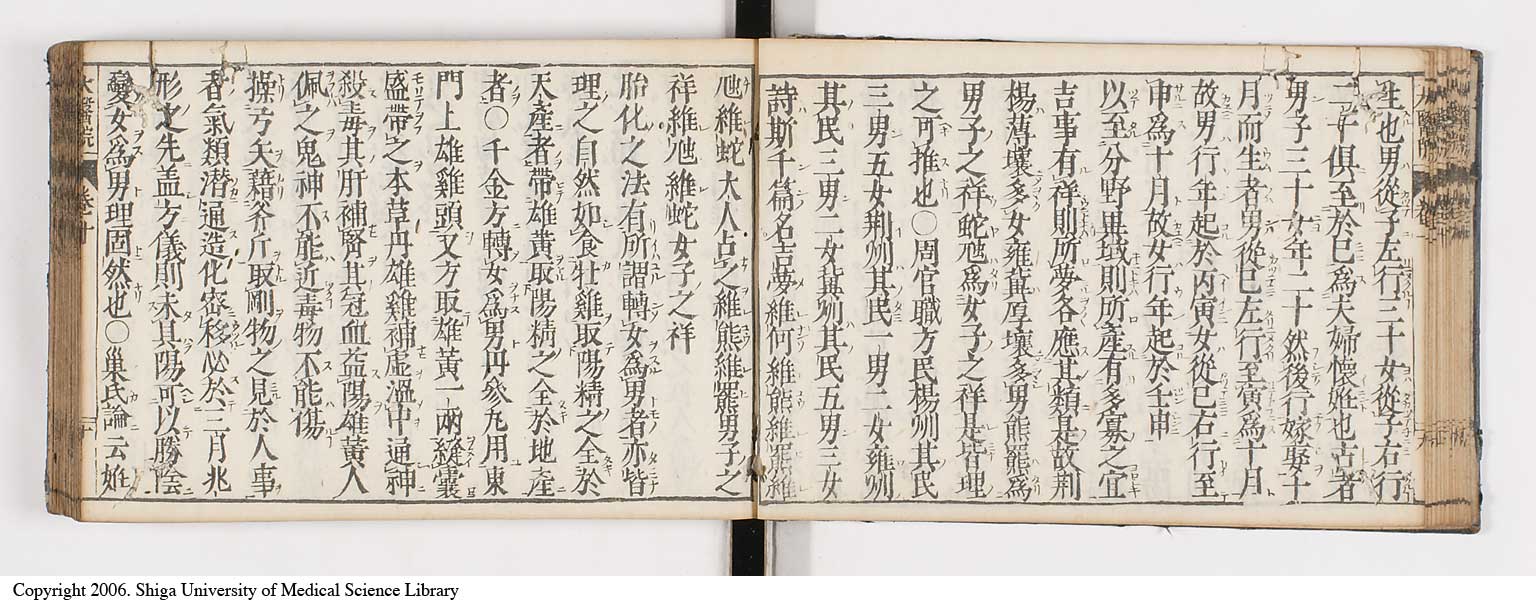 生也男從子左行三十女從子右行
二十俱至於巳爲夫婦懷姙也古者
男子三十女年二十然後行嫁娶十
月而生者男從巳左行至寅爲十月
故男行年起於丙寅女從巳右行至
申爲十月故女行年起於壬申
以至分野異域則所產有多寡之宜
吉事有祥則所夢各應其類是故荆
楊薄壤多女雍冀厚壤多男熊羆爲
男子之祥蛇虺爲女子之祥是皆理
之可推也〇周官職方民楊州其民
三男五女荆州其民一男二女雍州
其民三男二女冀州其民五男三女
詩斯千篇名吉夢維何維熊維羆維
虺維蛇大人占之維熊維羆男子之
祥維虺維蛇女子之祥
胎化之法有所謂轉女爲男者亦皆
理之自然如食牡雞取陽精之全於
天產者帶雄黄取陽精之全於地產
者〇千金方轉女爲男丹參丸用東
門上雄雞頭又方取雄黄一兩縫囊
盛帶之本草丹雄雞補虛溫中通神
殺毒其肝補腎其冠血益陽雄黄人
佩之鬼神不能近毒物不能傷
操弓矢藉斧斤取剛物之見於人事
者氣類潜通造化密移必於三月兆
形之先盖方儀則未具陽可以勝陰
變女爲男理固然也〇巢氏論云姙
Copyright 2006. Shiga University of Medical Science Library